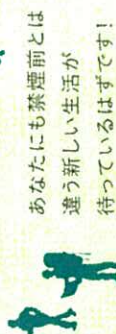 あなたにも禁煙前とは
違う新しい生活が
待っているはずです!